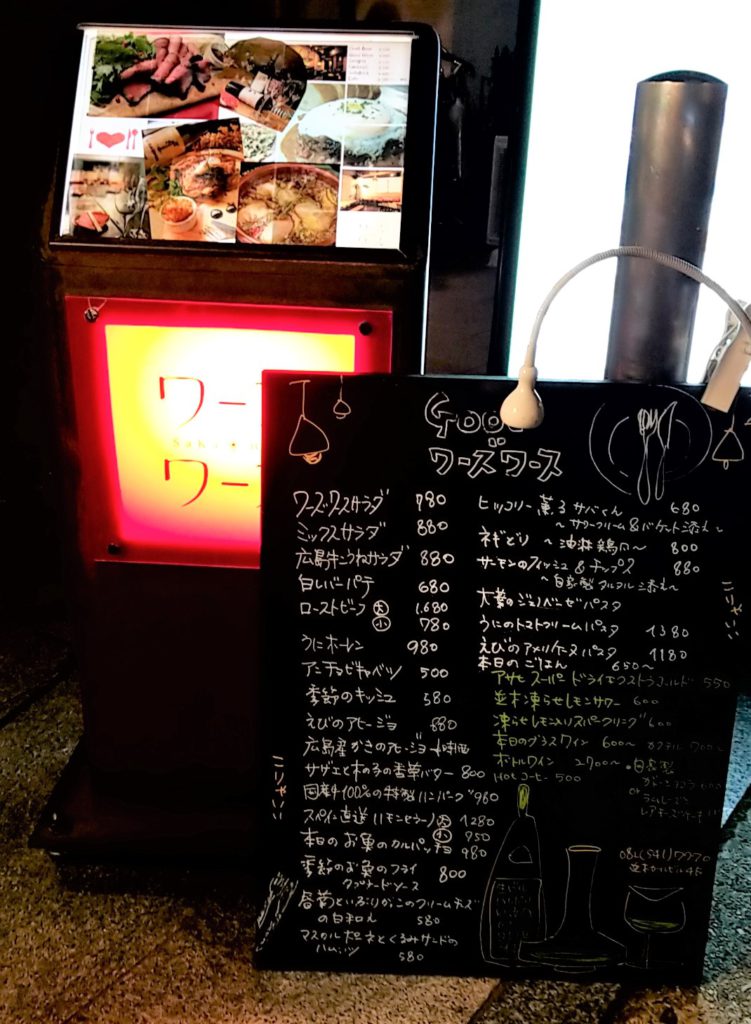 ワー
ワー
ワースワース
ワーズワースサラダ 780
ミックスサラダ 880
広島牛こうねサラダ 880
白レバーパテ 680
ローストビーフ 大 1.680
小 780
うにホーレン 980
アンチョビキャベツ 500
季節のキッシュ 580
えびのアヒージョ 880
広島産かきのアヒージョ
サザエと木の子の香草バター 800
国産牛100%の特製ハンバーグ 980
スペイン直送ハモンセラーノ 大 1280
小 750
本日のお魚のカルパッチョ 980
季節のお魚のフライ 800
タプナードソース
春菊といぶりがこのクリームチーズ
の白和え 580
マスカルポーネとくるみ
580
ヒッコリー薫るサバくん 680
~サワークリーム&バケット添え~
ネギどり ~油淋鶏風~ 800
サーモンのフィッシュ&チップス 880
~自家製タルタル添え~
大葉のジェノベーゼパスタ
うにのトマトクリームパスタ 1380
えびのアメリケーヌパスタ 1180
本日のごはん 650~
アサヒ スーパードライエクストラコールド 550
並木凍らせレモンサワー 600
凍らせレモン入りスパークリング 600
本日のグラスワイン 600~ カクテル 700~
ボトルワイン 2900~ 自家製
Hot コーヒー 500
or
レアチーズケーキ
こりゃいい
こりゃいい
082(541)7770